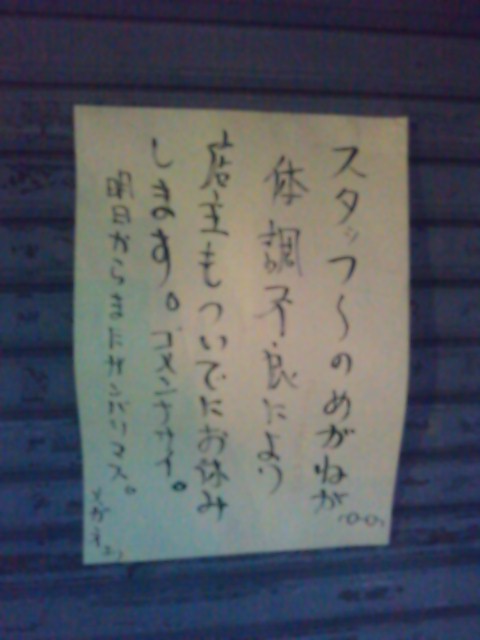 スタッフ〜のめがねが
体調不良により
店主もついでにお休み
します。ゴメンナサイ。
明日からまたガンバリマス。